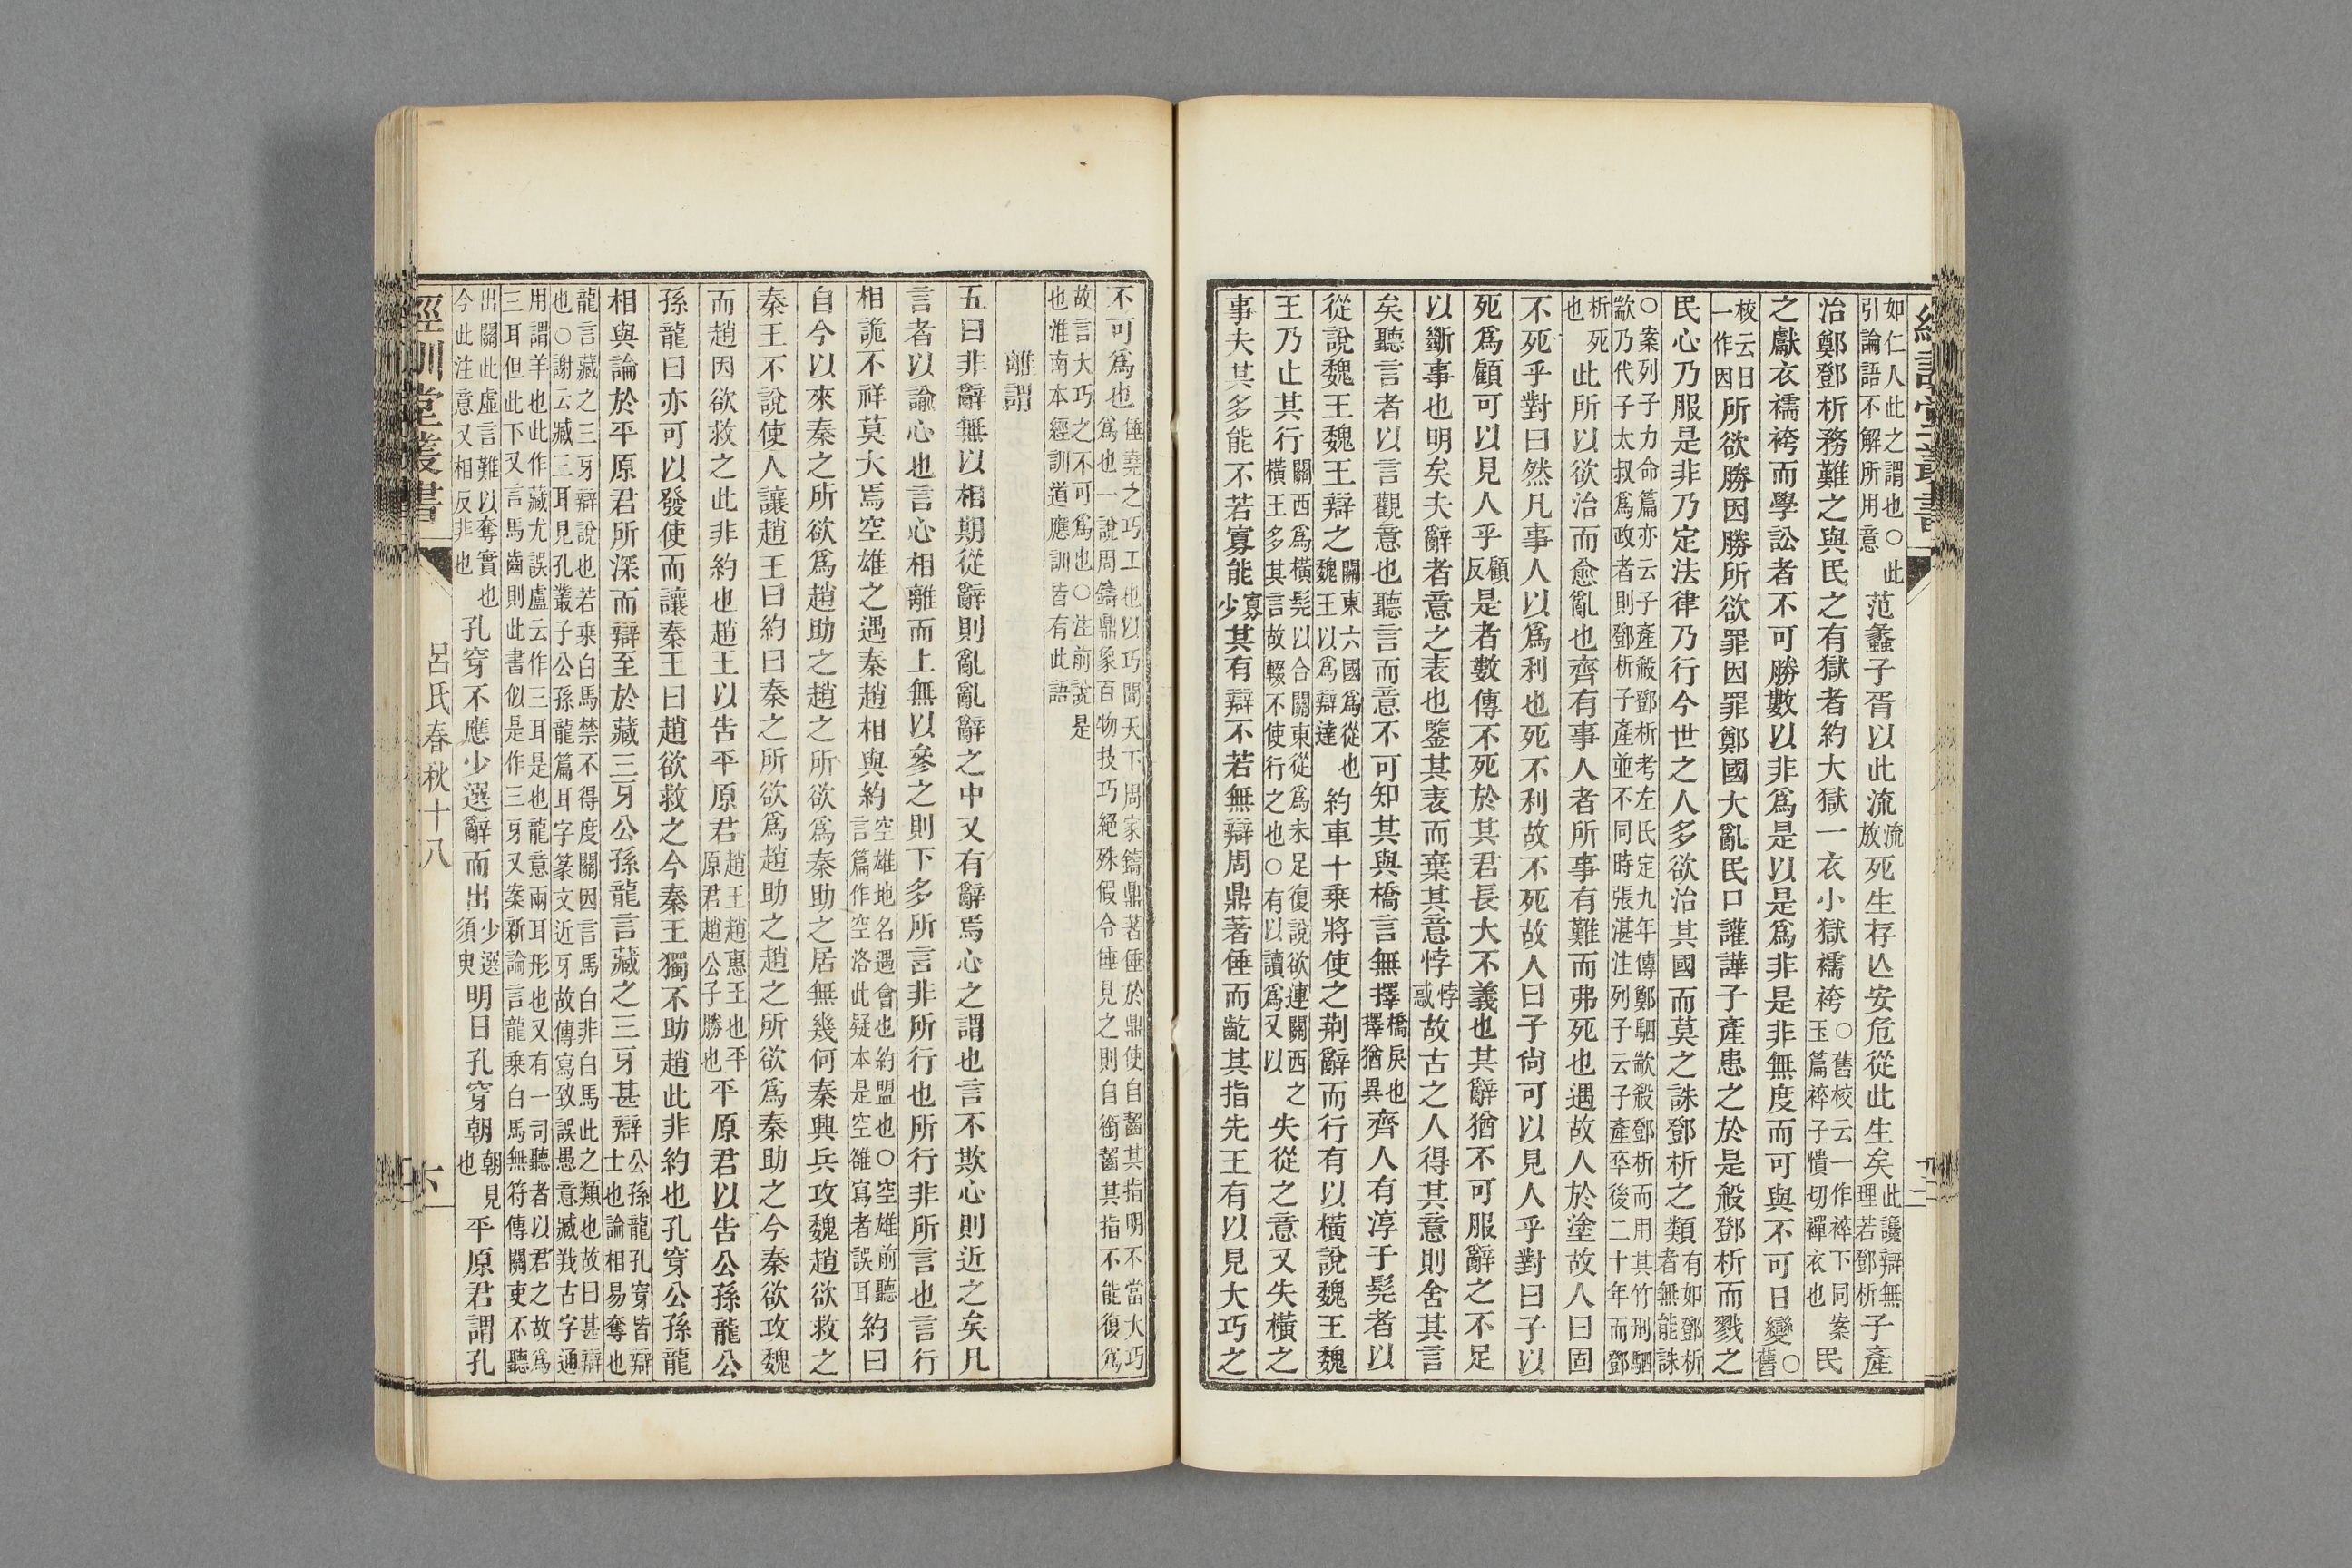 如仁人此之謂也〇此
引論語不解所用意
范蠡子胥以此流
流
放
死生存亾安危從此生矣
此讒辯無
理若鄧析
子產
治鄭鄧析務難之與民之有獄者約大獄一衣小獄襦袴
〇舊校云一作褲下同案
玉篇褲子憒切襌衣也
民
之獻衣襦袴而學訟者不可勝數以非爲是以是爲非是非無度而可與不可日變
〇
舊
校云日
一作因
所欲勝因勝所欲罪因罪鄭國大亂民口讙譁子產患之於是殺鄧析而戮之
民心乃服是非乃定法律乃行今世之人多欲治其國而莫之誅鄧析之類
有如鄧析
者無能誅
〇案列子力命篇亦云子產殺鄧析考左氏定九年傳鄭駟歂殺鄧析而用其竹刑駟
歂乃代子太叔爲政者則鄧析子產並不同時張湛注列子云子產卒後二十年而鄧
析死
也
此所以欲治而愈亂也齊有事人者所事有難而弗死也遇故人於塗故人曰固
不死乎對曰然凡事人以爲利也死不利故不死故人曰子尙可以見人乎對曰子以
死爲顧可以見人乎
顧
反
是者數傳不死於其君長大不義也其辭猶不可服辭之不足
以斷事也明矣夫辭者意之表也鑒其表而棄其意悖
悖
惑
故古之人得其意則舍其言
矣聽言者以言觀意也聽言而意不可知其與橋言無擇
橋戾也
擇猶異
齊人有淳于髡者以
從說魏王魏王辯之
關東六國爲從也
魏王以爲辯達
約車十乘將使之荆辭而行有以橫說魏王魏
王乃止其行
關西爲橫髡以合關東從爲未足復說欲連關西之
橫王多其言故輟不使行之也〇有以讀爲又以
失從之意又失橫之
事夫其多能不若寡能
寡
少
其有辯不若無辯周鼎著倕而齕其指先王有以見大巧之
不可爲也
倕堯之巧工也以巧聞天下周家鑄鼎著倕於鼎使自齧其指明不當大巧
爲也一說周鑄鼎象百物技巧絕殊假令倕見之則自銜齧其指不能復爲
故言大巧之不可爲也〇注前說是
也淮南本經訓道應訓皆有此語
離謂
五曰非辭無以相期從辭則亂亂辭之中又有辭焉心之謂也言不欺心則近之矣凡
言者以諭心也言心相離而上無以參之則下多所言非所行也所行非所言也言行
相詭不祥莫大焉空雄之遇秦趙相與約
空雄地名遇會也約盟也〇空雄前聽
言篇作空洛此疑本是空雒寫者誤耳
約曰
自今以來秦之所欲爲趙助之趙之所欲爲秦助之居無幾何秦興兵攻魏趙欲救之
秦王不說使人讓趙王曰約曰秦之所欲爲趙助之趙之所欲爲秦助之今秦欲攻魏
而趙因欲救之此非約也趙王以告平原君
趙王趙惠王也平
原君趙公子勝也
平原君以告公孫龍公
孫龍曰亦可以發使而讓秦王曰趙欲救之今秦王獨不助趙此非約也孔穿公孫龍
相與論於平原君所深而辯至於藏三牙公孫龍言藏之三牙甚辯
公孫龍孔穿皆辯
士也論相易奪也
龍言藏之三牙辯說也若乘白馬禁不得度關因言馬白非白馬此之類也故曰甚辯
也〇謝云臧三耳見孔叢子公孫龍篇耳字篆文近牙故傳寫致誤愚意臧羘古字通
用謂羊也此作藏尤誤盧云作三耳是也龍意兩耳形也又有一司聽者以君之故爲
三耳但此下又言馬齒則此書似是作三牙又案新論言龍乘白馬無符傳關吏不聽
出關此虛言難以奪實也
今此注意又相反非也
孔穿不應少選辭而出
少選
須臾
明日孔穿朝
朝見
也
平原君謂孔
經訓堂叢書
呂氏春秋十八
六